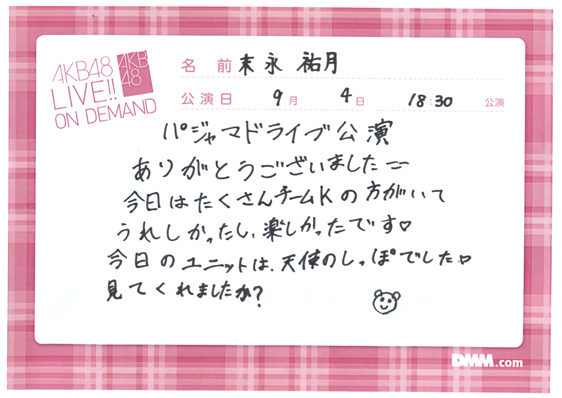 AKB48
LIVE!!
ON DEMAND
AKB
48
名 前 末永 祐月
公演日 9月 4日 18:30 公演
パジャマドライブ公演
ありがとうございました
今日はたくさんチームKの方がいて
うれしかったし、楽しかったです♡
今日のユニットは、天使のしっぽでした♡
見てくれましたか?
DMM.com